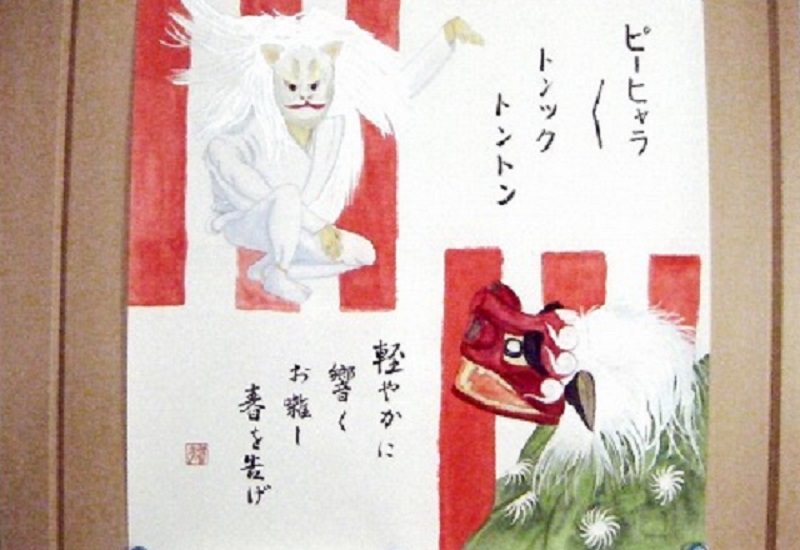 ピーヒャラ
〱
トンツク
トントン
軽やかに
響く
お囃し
春を告げ